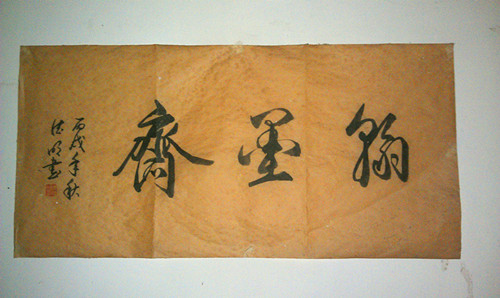 翰墨齋
丙戌年秋
德明書